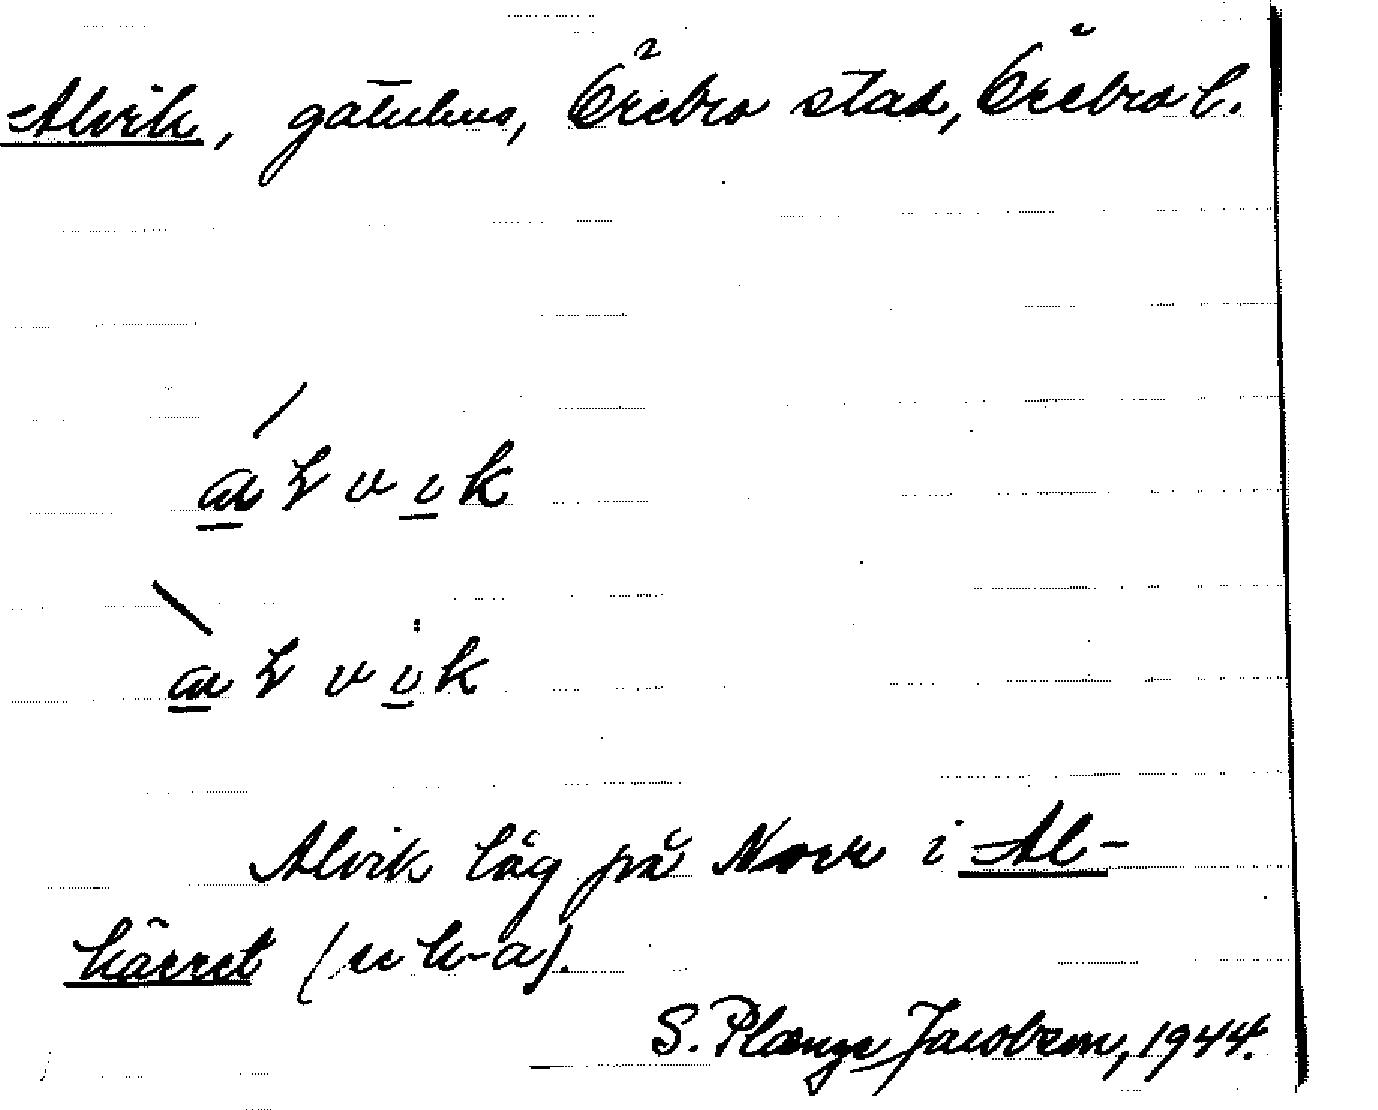 Alvik, gatuhus, Örebro stad, Örebro l.
Alvik låg på Norr i Al-
kärret (se k-a).
S. Plænge Jacobson, 1944.